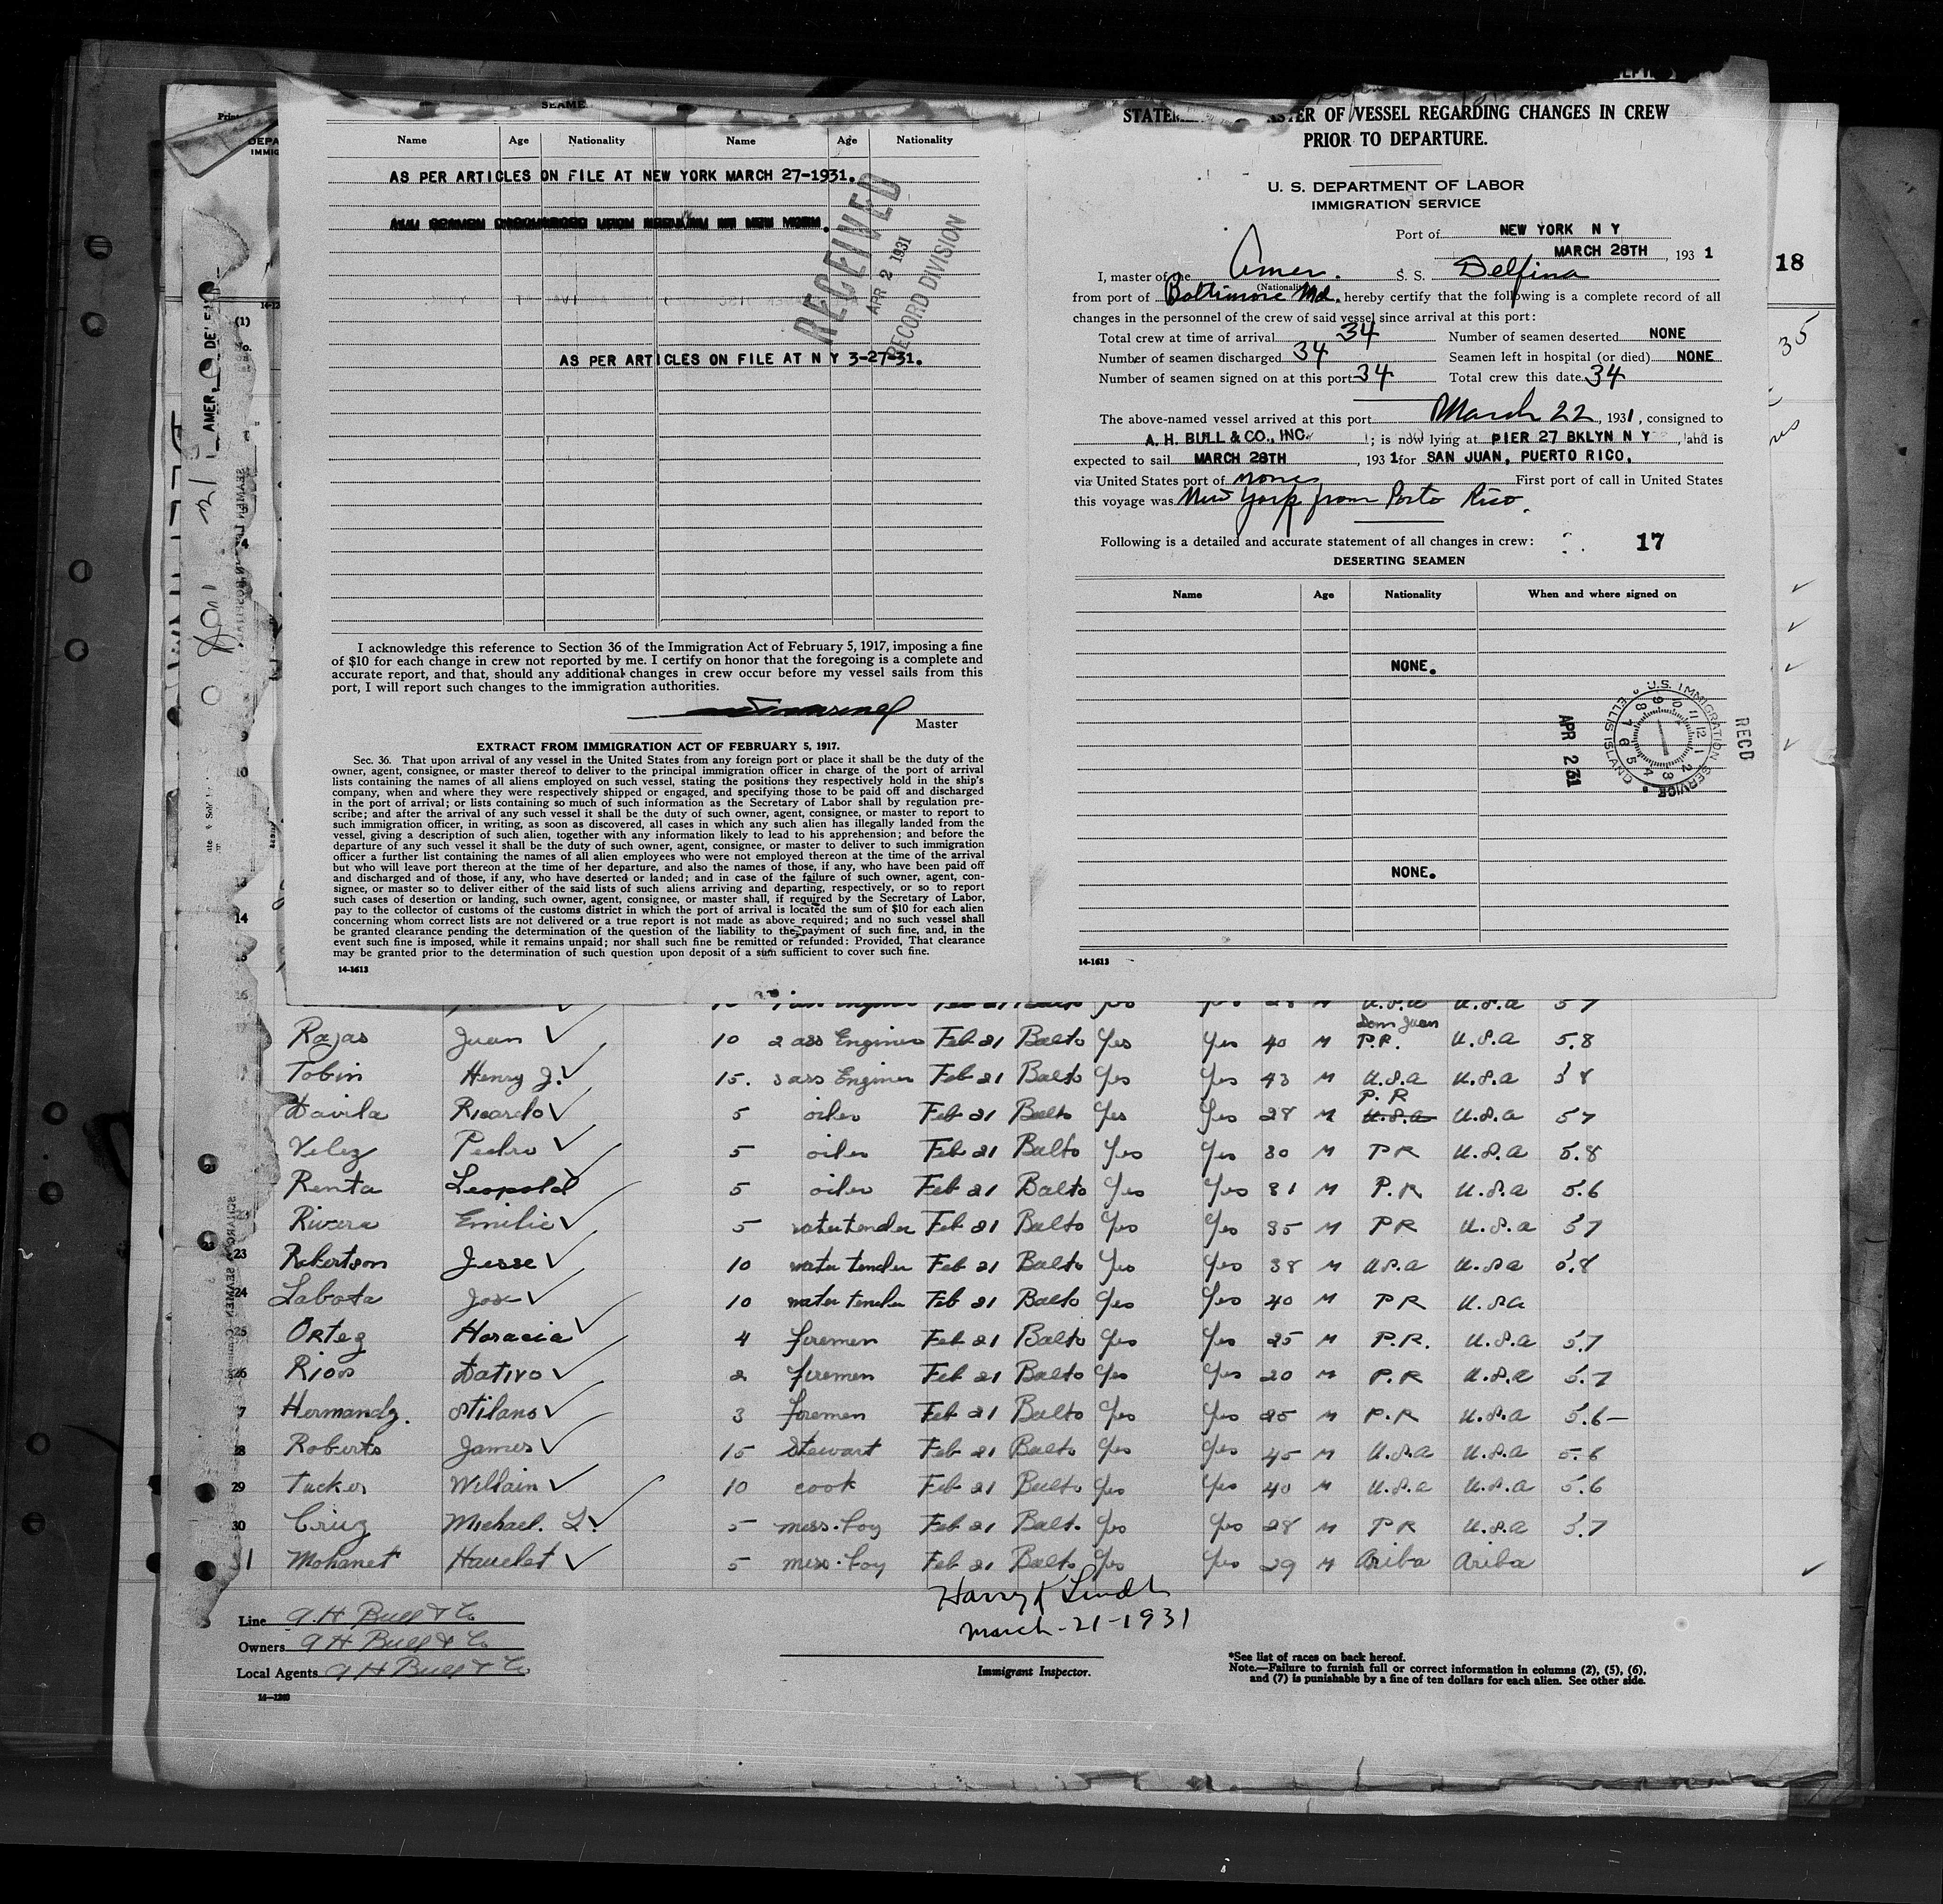 SEAME
Name Age Nationality Name Age Nationality
AS PER ARTICLES ON FILE AT NEW YORK MARCH 27-1931.
RECEIVED
APR 2 1931
RECORD DIVISION
AS PER ARTICLES ON FILE AT N Y 3-27-31.
I acknowledge this reference to Section 36 of the Immigration Act of February 5, 1917, imposing a fine
of $10 for each change in crew not reported by me. I certify on honor that the foregoing is a complete and
accurate report, and that, should any additional changes in crew occur before my vessel sails from this
port, I will report such changes to the immigration authorities.
Master
EXTRACT FROM IMMIGRATION ACT OF FEBRUARY 5, 1917.
Sec. 36. That upon arrival of any vessel in the United States from any foreign port or place it shall be the duty of the
owner, agent, consignee, or master thereof to deliver to the principal immigration officer in charge of the port of arrival
lists containing the names of all aliens employed on such vessel, stating the positions they respectively hold in the ship's
company, when and where they were respectively shipped or engaged, and specifying those to be paid off and discharged
in the port of arrival; or lists containing so much of such information as the Secretary of Labor shall by regulation pre-
scribe; and after the arrival of any such vessel it shall be the duty of such owner, agent, consignee, or master to report to
such immigration officer, in writing, as soon as discovered, all cases in which any such alien has illegally landed from the
vessel, giving a description of such alien, together with any information likely to lead to his apprehension; and before the
departure of any such vessel it shall be the duty of such owner, agent, consignee, or master to deliver to such immigration
officer a further list containing the names of all alien employees who were not employed thereon at the time of the arrival
but who will leave port thereon at the time of her departure, and also the names of those, if any, who have been paid off
and discharged and of those, if any, who have deserted or landed; and in case of the failure of such owner, agent, con-
signee, or master so to deliver either of the said lists of such aliens arriving and departing, respectively, or so to report
such cases of desertion or landing, such owner, agent, consignee, or master shall, if required by the Secretary of Labor,
pay to the collector of customs of the customs district in which the port of arrival is located the sum of $10 for each alien
concerning whom correct lists are not delivered or a true report is not made as above required; and no such vessel shall
be granted clearance pending the determination of the question of the liability to the payment of such fine, and, in the
event such fine is imposed, while it remains unpaid; nor shall such fine be remitted or refunded: Provided, That clearance
may be granted prior to the determination of such question upon deposit of a sum sufficient to cover such fine.
14-1613
OF VESSEL REGARDING CHANGES IN CREW
PRIOR TO DEPARTURE.
U. S. DEPARTMENT OF LABOR
IMMIGRATION SERVICE
Port of NEW YORK N Y
MARCH 28TH, 1931
I, master of the Amer. S. S. Delfina
(Nationality)
from port of Baltimore Md. hereby certify that the following is a complete record of all
changes in the personnel of the crew of said vessel since arrival at this port:
Total crew at time of arrival 34 Number of seamen deserted NONE
Number of seamen discharged 34 Seamen left in hospital (or died) NONE
Number of seamen signed on at this port 34 Total crew this date 34
The above-named vessel arrived at this port March 22, 1931, consigned to
A. H. BULL & CO., INC. ; is now lying at PIER 27 BKLYN N Y, and is
expected to sail MARCH 28TH, 1931 for SAN JUAN, PUERTO RICO.
via United States port of None First port of call in United States
this voyage was New York from Porto Rico.
Following is a detailed and accurate statement of all changes in crew: 17
DESERTING SEAMEN
Name Age Nationality When and where signed on
NONE.
U.S. IMMIGRATION SERVICE ELLIS ISLAND
RECD
APR 2 31
NONE.
14-1613
18
35
Rajas Juan 10 2 ass Engineer Feb 21 Balto Yes Yes 40 M P.R. U.S.A 5.8
Tobin Henry J. 15. 3 ass Engineer Feb 21 Balto Yes Yes 43 M U.S.A U.S.A 5 8
Davila Ricardo 5 oiler Feb 21 Balto Yes Yes 28 M P.R U.S.A U.S.A 57
Velez Pedro 5 oiler Feb 21 Balto Yes Yes 30 M PR U.S.A 5.8
Renta Leopold 5 oiler Feb 21 Balto Yes Yes 31 M P.R U.S.A 5.6
Rivera Emilio 5 watertender Feb 21 Balto Yes Yes 35 M PR U.S.A 57
23 Robertson Jesse 10 water tender Feb 21 Balto Yes Yes 38 M U.S.A U.S.A 5.8
24 Labota Jose 10 water tender Feb 21 Balto Yes Yes 40 M PR U.S.A
25 Orteg Horacia 4 firemen Feb 21 Balto Yes Yes 25 M P.R. U.S.A 5.7
26 Rios Dativo 2 firemen Feb 21 Balto Yes Yes 20 M P.R U.S.A 5.7
7 Hermandz. Stilano 3 firemen Feb 21 Balto Yes Yes 25 M P.R U.S.A 5.6
28 Roberts James 15 Stewart Feb 21 Balto Yes Yes 45 M U.S.A U.S.A 5.6
29 Tucker William 10 cook Feb 21 Balto Yes Yes 40 M U.S.A U.S.A 5.6
30 Cruz Michael. L. 5 mess-boy Feb 21 Balt. Yes Yes 28 M PR U.S.A 5.7
31 Mohamet Hauclet 5 mess-boy Feb 21 Balt. Yes Yes 29 M Ariba Ariba
Line A.H Bull & Co
Owners A H Bull & Co
Local Agents A H Bull & Co
14-1240
Harry K Lindt
March-21-1931
Immigrant Inspector.
*See list of races on back hereof.
Note.—Failure to furnish full or correct information in columns (2), (5), (6),
and (7) is punishable by a fine of ten dollars for each alien. See other side.